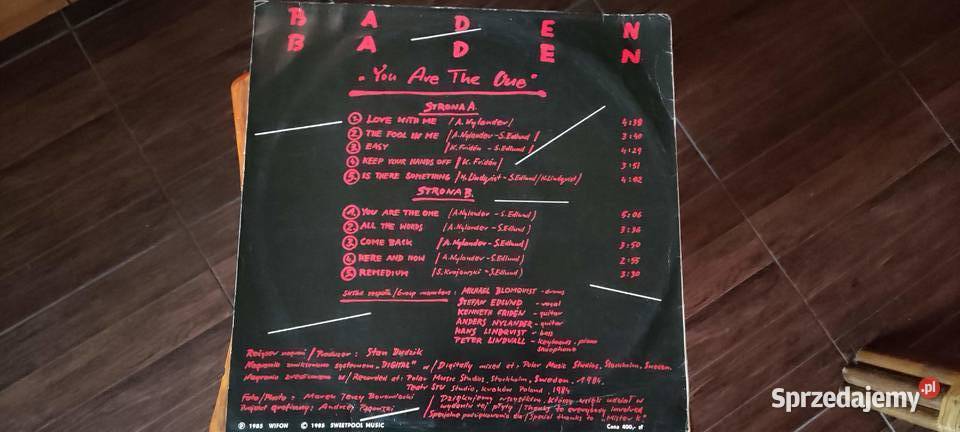 B A D E N
B A D E N
"You Are The One"
STRONA A.
1. LOVE WITH ME /A. Nylander/ 4:38
2. THE FOOL IN ME /A. Nylander - S. Edlund/ 3:40
3. EASY /K. Fridén - S. Edlund/ 4:29
4. KEEP YOUR HANDS OFF /K. Fridén/ 3:51
5. IS THERE SOMETHING /H. Lindqvist - S. Edlund/H. Lindqvist/ 4:02
STRONA B.
1. YOU ARE THE ONE /A. Nylander - S. Edlund/ 5:06
2. ALL THE WORDS /A. Nylander - S. Edlund/ 3:36
3. COME BACK /A. Nylander - S. Edlund/ 3:50
4. HERE AND NOW /A. Nylander - S. Edlund/ 2:55
5. REMEDIUM /S. Krajewski - S. Edlund/ 3:30
zespołu/Group members: MICHAEL BLOMQVIST - drums
STEFAN EDLUND - vocal
KENNETH FRIDEN - guitar
ANDERS NYLANDER - guitar
HANS LINDQVIST - bass
PETER LINDVALL - keyboards, piano
saxophone
Reżyser nagrań / Producer: Stan Dudzik
Nagranie zmiksowano systemem „DIGITAL" w/Digitally mixed at: Polar Music Studios, Stockholm, Sweden
Nagranie zrealizowano w/Recorded at: Polar Music Studios, Stockholm, Sweden, 1984.
Teatr STU Studio, Kraków Poland, 1984
Foto/Photo: Marek Jerzy
Projekt graficzny: Andrzej
/Dziękujemy wszystkim, którzy wzięli udział w
wydaniu tej płyty/Thanks to everybody involved
/Specjalne podziękowania dla/Special thanks to „Mister K"
Ⓟ 1985 WIFON © 1985 SWEETPOOL MUSIC Cena 400,- zł
Sprzedajemy.pl